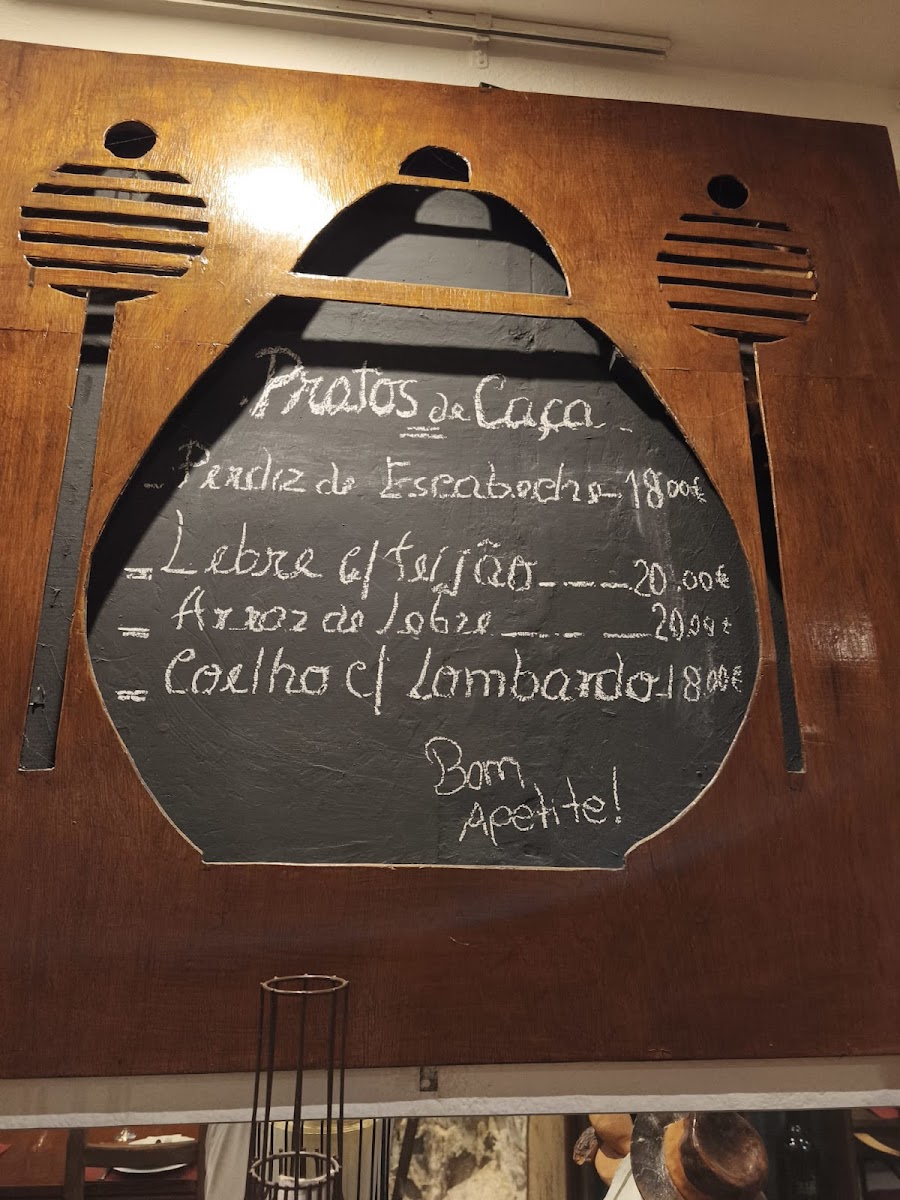 Pratos de Caça
- Perdiz de Escabeche - 18.00€
= Lebre c/ feijão - - - 20.00€
= Arroz de lebre - - - 20.00€
= Coelho c/ Lombardo - 18.00€
Bom
Apetite!